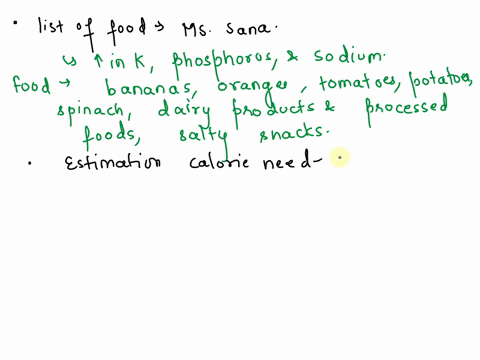 • list of food → Ms. Sana.
↳ ↑ in K, phosphoros, & sodium.
food → bananas, oranges, tomatoes, potatoes,
spinach, dairy products & processed
foods, salty snacks.
• Estimation calorie need-